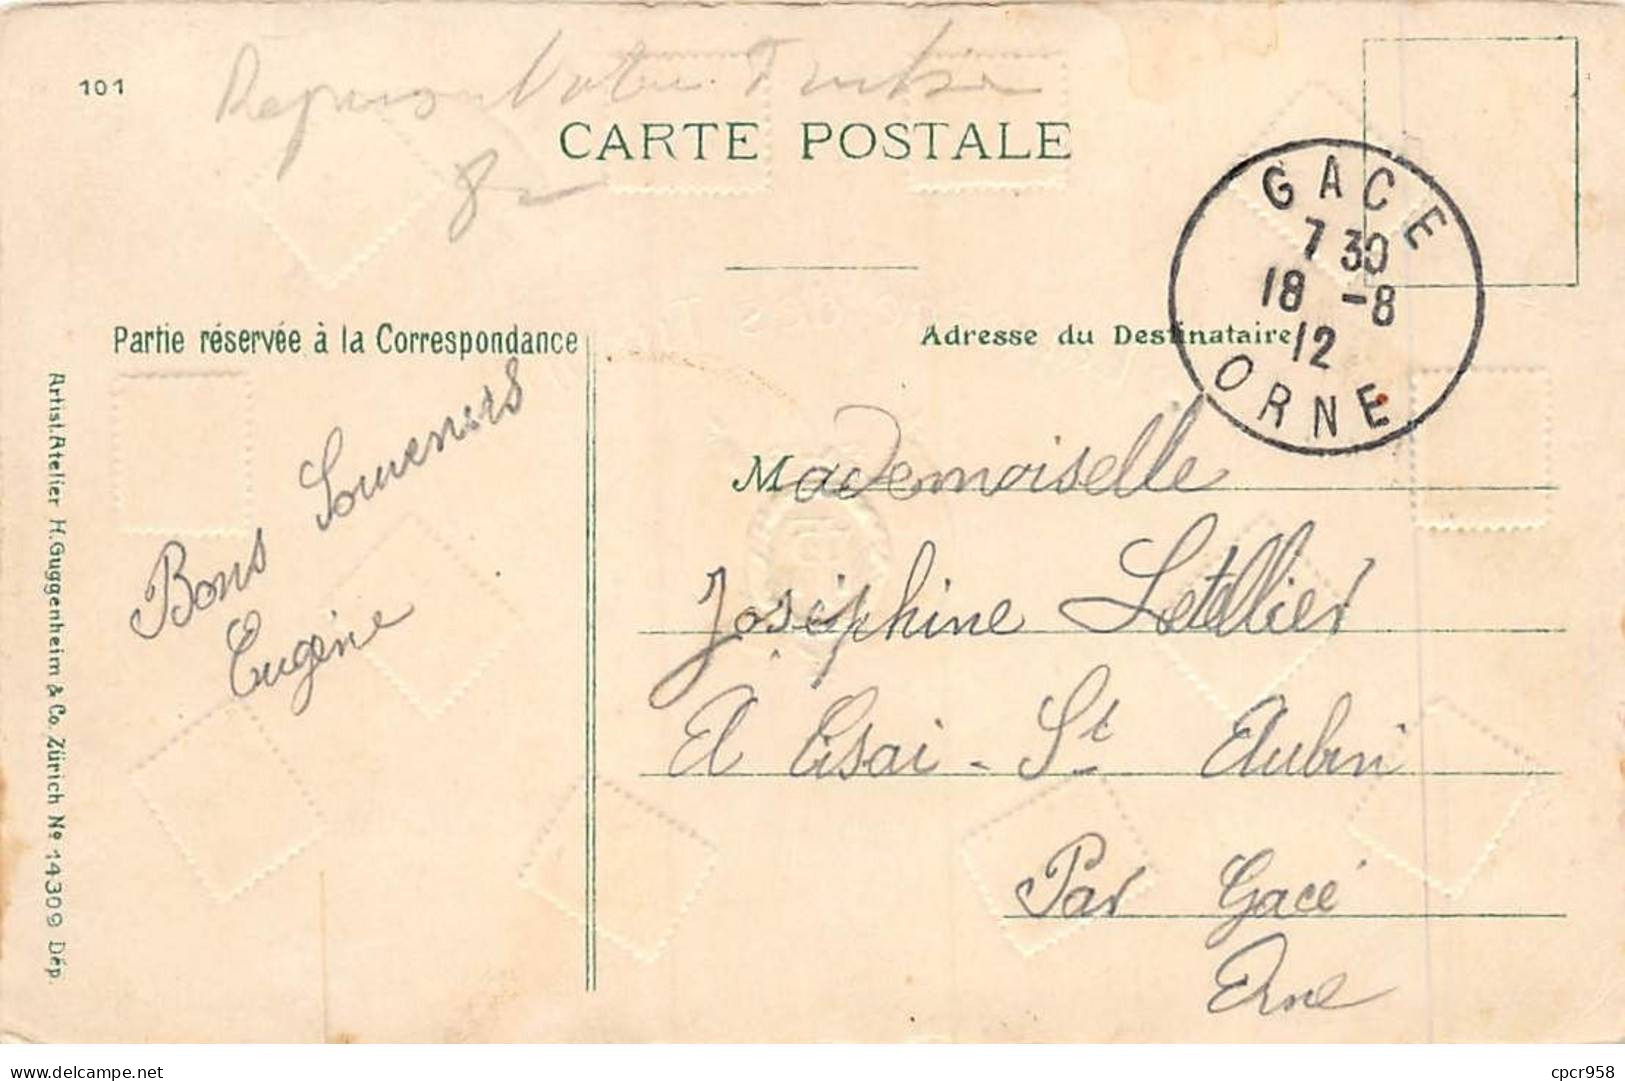 101
CARTE POSTALE
GACE
7 30
18 -8
12
ORNE
Partie réservée à la Correspondance
Adresse du Destinataire
Bons Souvenirs
Eugène
Mademoiselle
Joséphine Letellier
A -St Aubin
Par Gacé
Orne
Artist. Atelier H. Guggenheim & Co. Zürich No 14309 Dép.
cpcr958